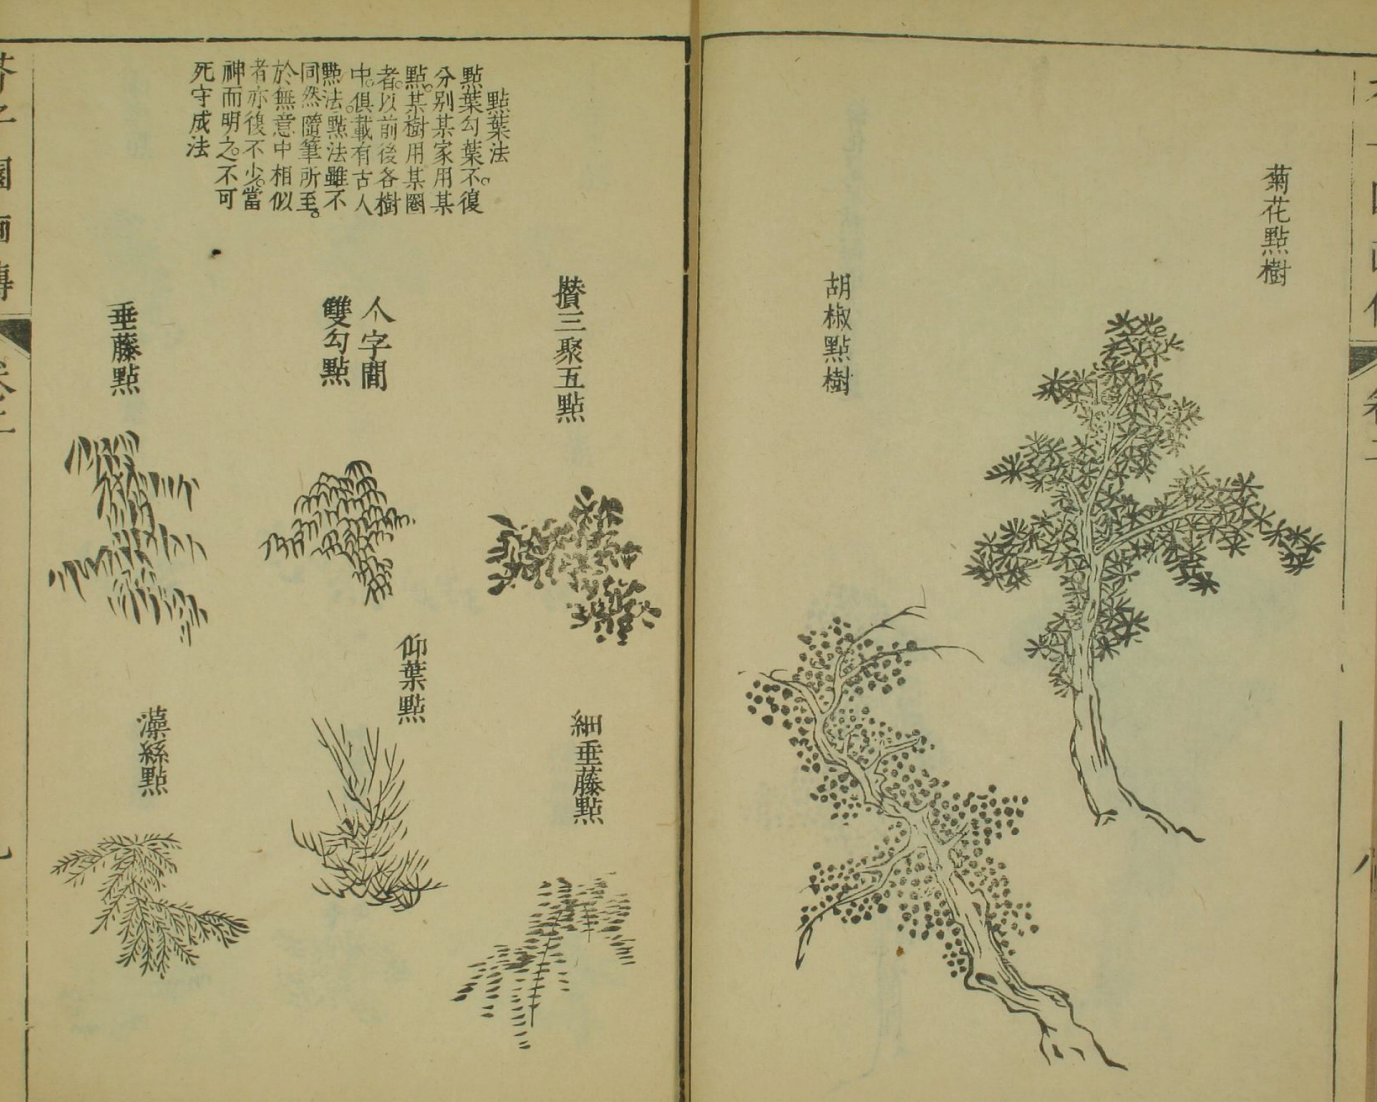 菊花點樹
胡椒點樹
點葉法
點葉勾葉不復
分別某家用某
點某樹用某圈
者以前後各樹
中俱載有古人
點法點法雖不
同然隨筆所至
於無意中相似
者亦復不少當
神而明之不可
死守成法
攢三聚五點
个字間
雙勾點
垂藤點
仰葉點
細垂藤點
藻絲點
芥子園画傳